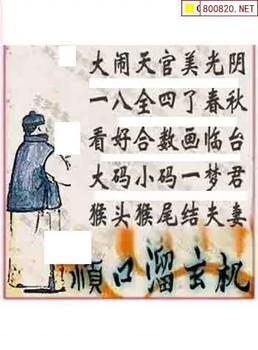 800820.NET
大闹天官美光阴
一八全四了春秋
看好合数画临台
大码小码一梦君
猴头猴尾结夫妻
順口溜玄机